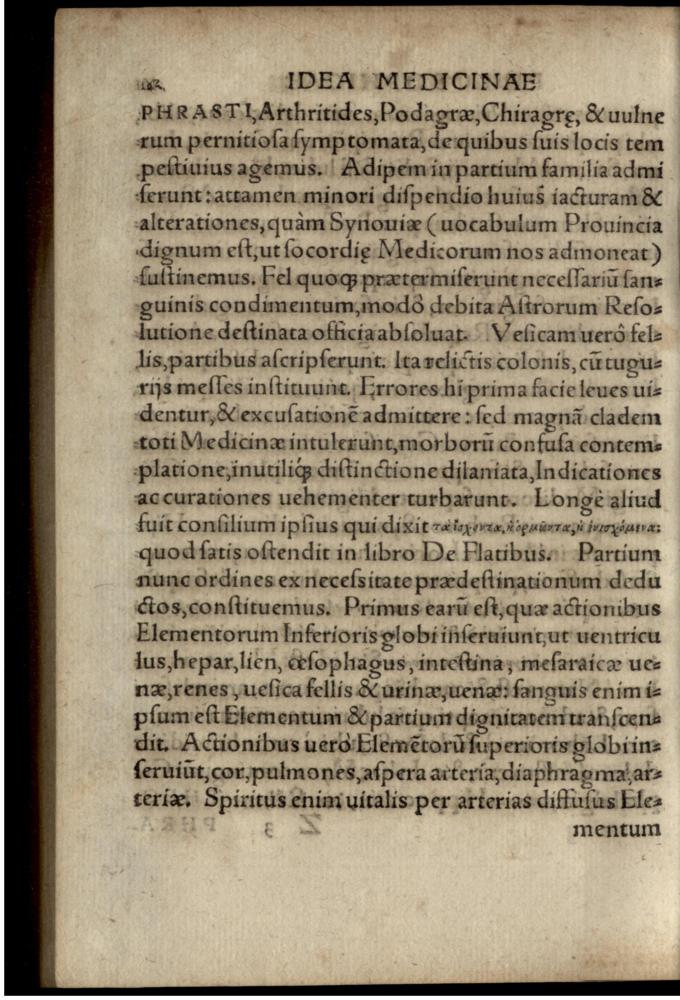 IDEA MEDICINAE
PHRASTI, Arthritides, Podagræ, Chiragrę, & uulne
rum pernitiosa symptomata, de quibus suis locis tem
pestiuius agemus. Adipem in partium familia admi
serunt: attamen minori dispendio huius iacturam &
alterationes, quàm Synouiæ (uocabulum Prouincia
dignum est, ut socordię Medicorum nos admoneat)
sustinemus. Fel quoqȝ prætermiserunt necessariū san⸗
guinis condimentum, modò debita Astrorum Reso⸗
lutione destinata officia absoluat. Vesicam uerò fel⸗
lis, partibus ascripserunt. Ita relictis colonis, cū tugu⸗
rijs messes instituunt. Errores hi prima facie leues ui⸗
dentur, & excusationē admittere: sed magnā cladem
toti Medicinæ intulerunt, morborū confusa contem⸗
platione, inutiliq́ȝ distinctione dilaniata, Indicationes
ac curationes uehementer turbarunt. Longè aliud
fuit consilium ipsius qui dixit
quod satis ostendit in libro De Flatibus. Partium
nunc ordines ex necessitate prædestinationum dedu
ctos, constituemus. Primus earū est, quæ actionibus
Elementorum Inferioris globi inseruiunt, ut uentricu
lus, hepar, lien, œsophagus, intestina, mesaraicæ ue⸗
næ, renes, uesica fellis & urinæ, uenæ: sanguis enim i⸗
psum est Elementum & partium dignitatem transcen⸗
dit. Actionibus uerò Elemētorū superioris globi in⸗
seruiūt, cor, pulmones, aspera arteria, diaphragma, ar⸗
teriæ. Spiritus enim uitalis per arterias diffusus Ele⸗
mentum